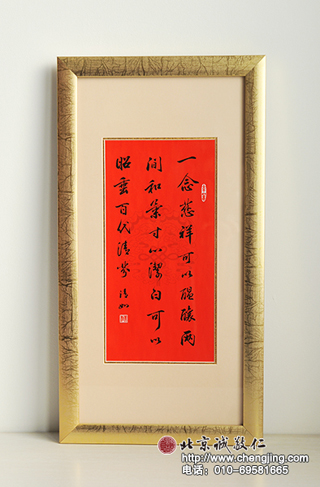 一念慈祥可以醖釀两
间和氣寸心潔白可以
昭垂百代清芬
北京诚敬仁
http://www.chengjing.com
电话：010-69581665